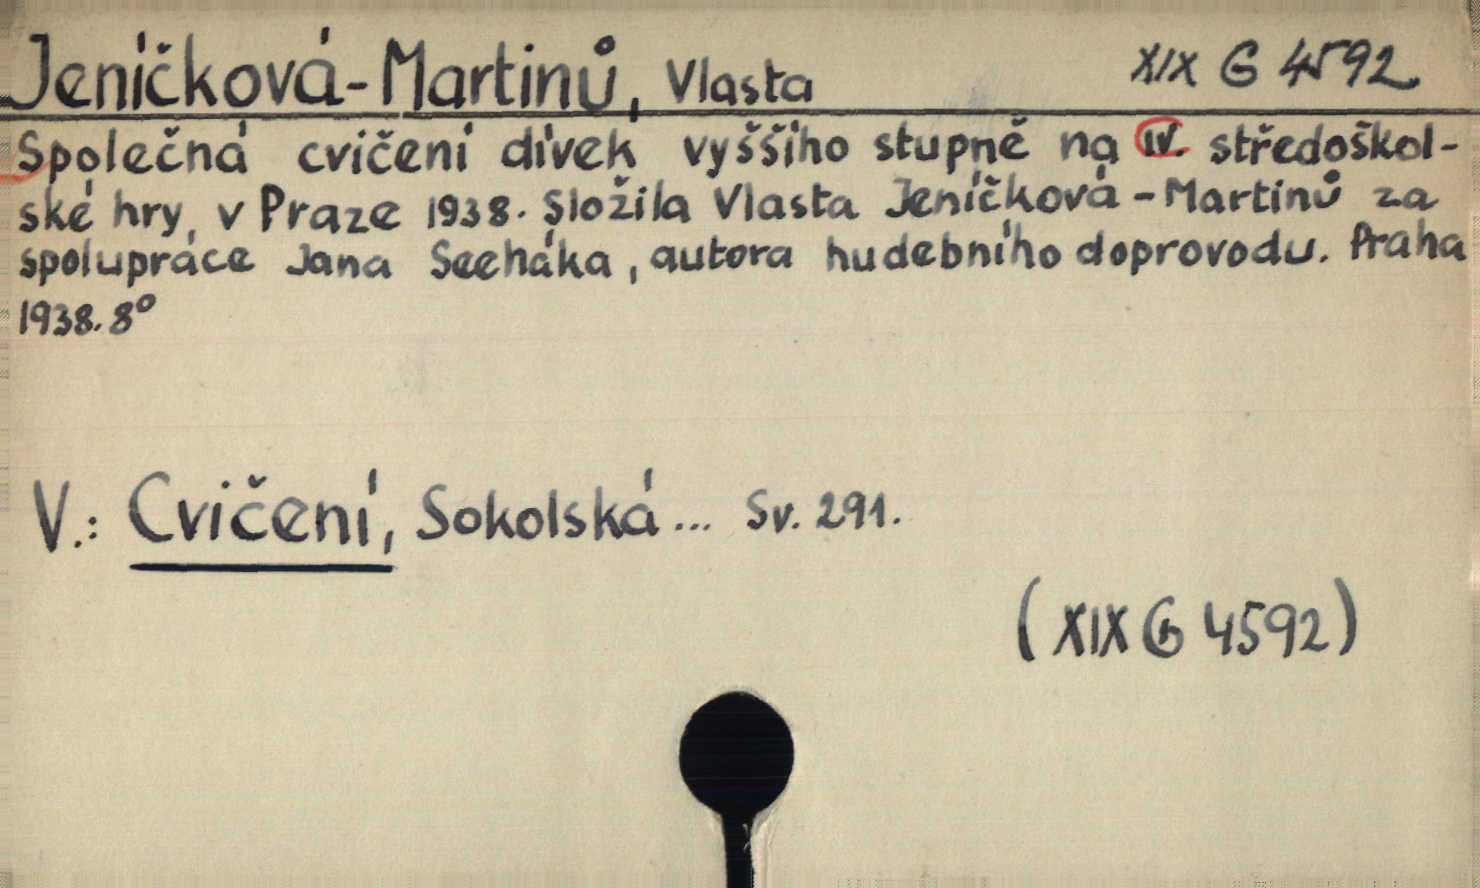 Jeníčková-Martinů, Vlasta XIX G 4592
Společná cvičení dívek vyššího stupně na IV. středoškol-
ské hry, v Praze 1938. Složila Vlasta Jeníčková-Martinů za
spolupráce Jana Seeháka, autora hudebního doprovodu. Praha
1938. 8°
V.: Cvičení, Sokolská... Sv. 291.
(XIX G 4592)